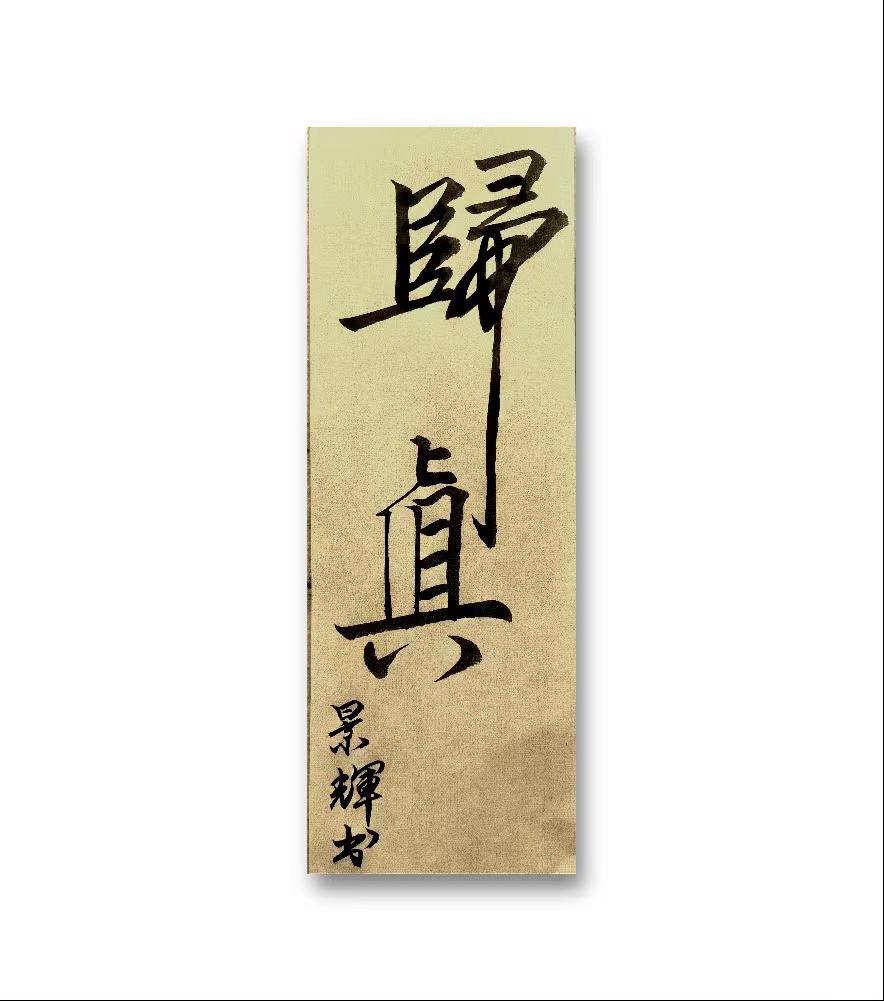 歸眞
景輝书